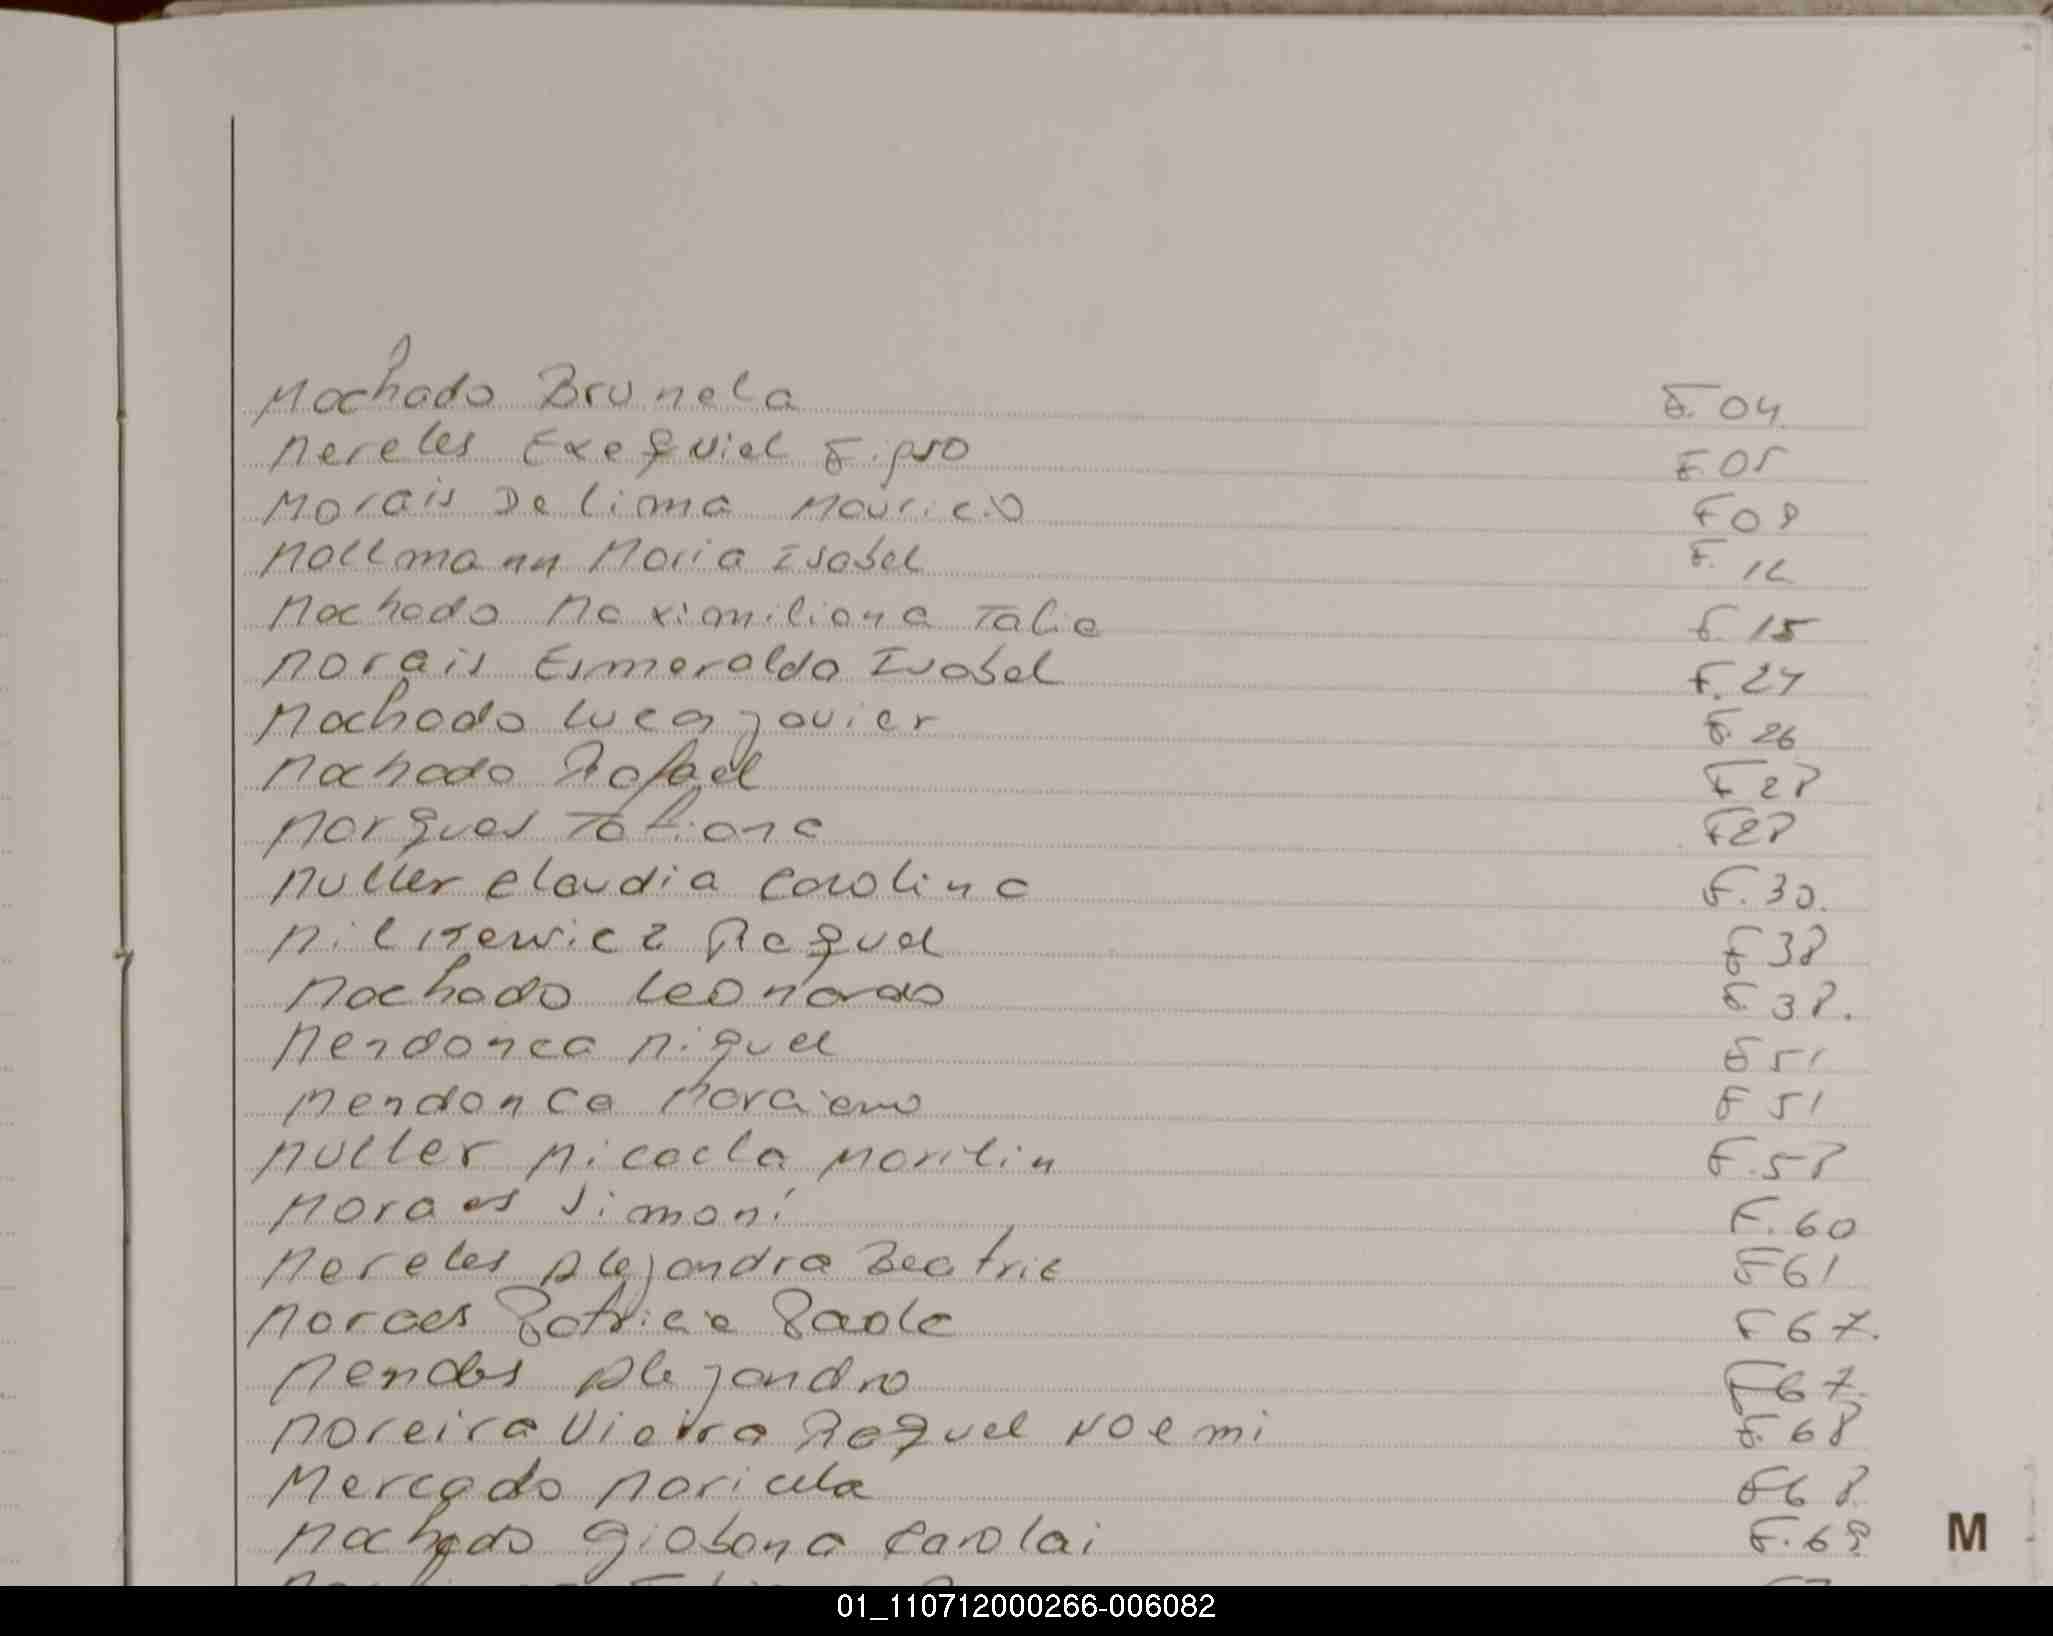 Machado Brunela F. 04
Mereles Exequiel F.
Morais De lima Mauricio F 08
Mollmann Maria Isabel F. 12
Machado Maximiliana Talia F. 15
Morais Esmeralda Isabel F. 24
Machado Lucas Javier F. 26
Machado Rafael F 28
Marques Tatiana F 28
Muller Claudia Carolina F. 30.
Raquel F 38
Machado Leonardo F 38.
Mendonca Miguel F 51
Mendonca F 51
Muller Micaela Marilin F. 58
Moraes Simoni F. 60
Mereles Alejandra Beatric F 61
Moraes Patricia Paola F 67.
Mendes Alejandro F 67.
Moreira Vieira Raquel Noemi F. 68
Mercado Maricela F 68
Machado Giobana Carolai F. 69
M
01_110712000266-006082